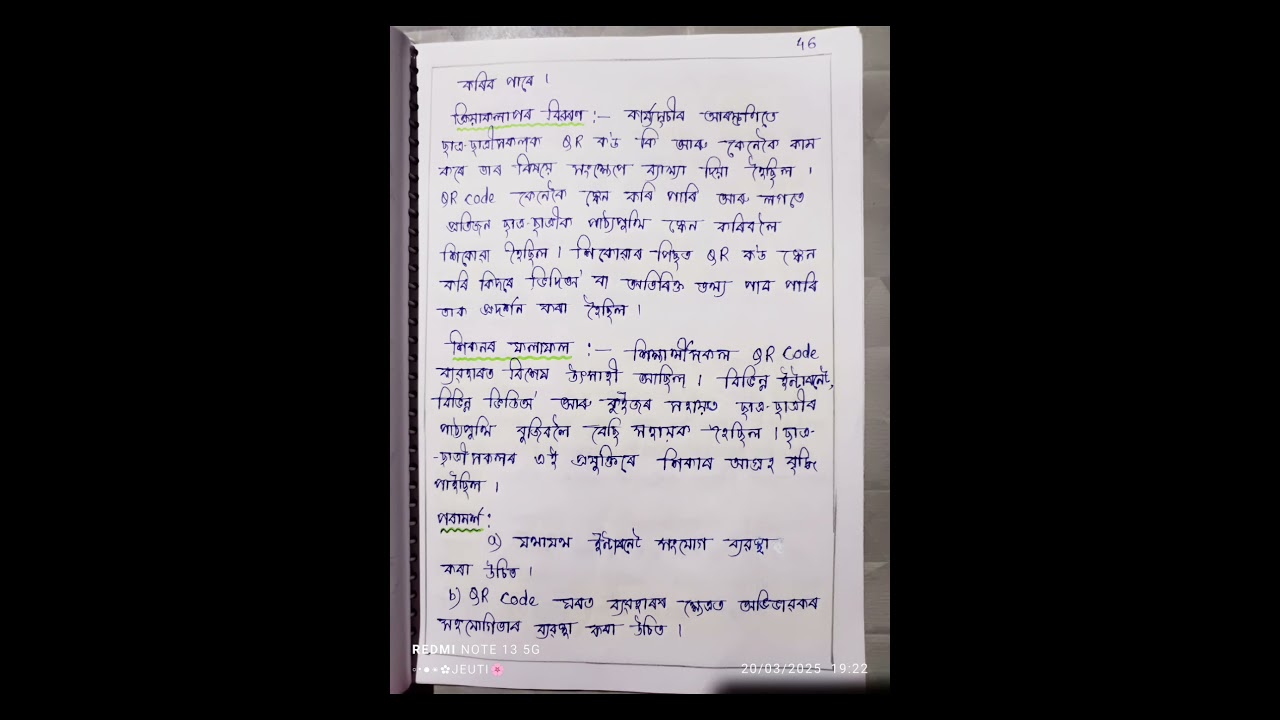 46
কৰিব পাৰে ।
ক্ৰিয়াকলাপৰ বিৱৰণ :- কাৰ্যসূচীৰ আৰম্ভণিতে
ছাত্ৰ-ছাত্ৰীসকলক QR ক'ড কি আৰু কেনেকৈ কাম
কৰে তাৰ বিষয়ে সংক্ষেপে ব্যাখ্যা দিয়া হৈছিল ।
QR code কেনেকৈ স্কেন কৰি পাৰি আৰু লগতে
প্ৰতিজন ছাত্ৰ-ছাত্ৰীক পাঠ্যপুথি স্কেন কৰিবলৈ
শিকোৱা হৈছিল । শিকোৱাৰ পিছত QR ক'ড স্কেন
কৰি কিদৰে ভিদিঅ' বা অতিৰিক্ত তথ্য পাব পাৰি
তাক প্ৰদৰ্শন কৰা হৈছিল ।
শিকনৰ ফলাফল :- শিক্ষাৰ্থীসকল QR Code
ব্যৱহাৰত বিশেষ উৎসাহী আছিল । বিভিন্ন ইন্টাৰনেট,
বিভিন্ন ভিডিঅ' আৰু কুইজৰ সহায়ত ছাত্ৰ-ছাত্ৰীৰ
পাঠ্যপুথি বুজিবলৈ বেছি সহায়ক হৈছিল । ছাত্ৰ-
-ছাত্ৰীসকলৰ এই প্ৰযুক্তিৰে শিকাৰ আগ্ৰহ বৃদ্ধি
পাইছিল ।
পৰামৰ্শ :
a) যথাযথ ইন্টাৰনেট সংযোগ ব্যৱস্থা
কৰা উচিত ।
b) QR Code ঘৰত ব্যৱহাৰৰ ক্ষেত্ৰত অভিভাৱকৰ
সহযোগিতাৰ ব্যৱস্থা কৰা উচিত ।
REDMI NOTE 13 5G
JEUTI
20/03/2025 19:22